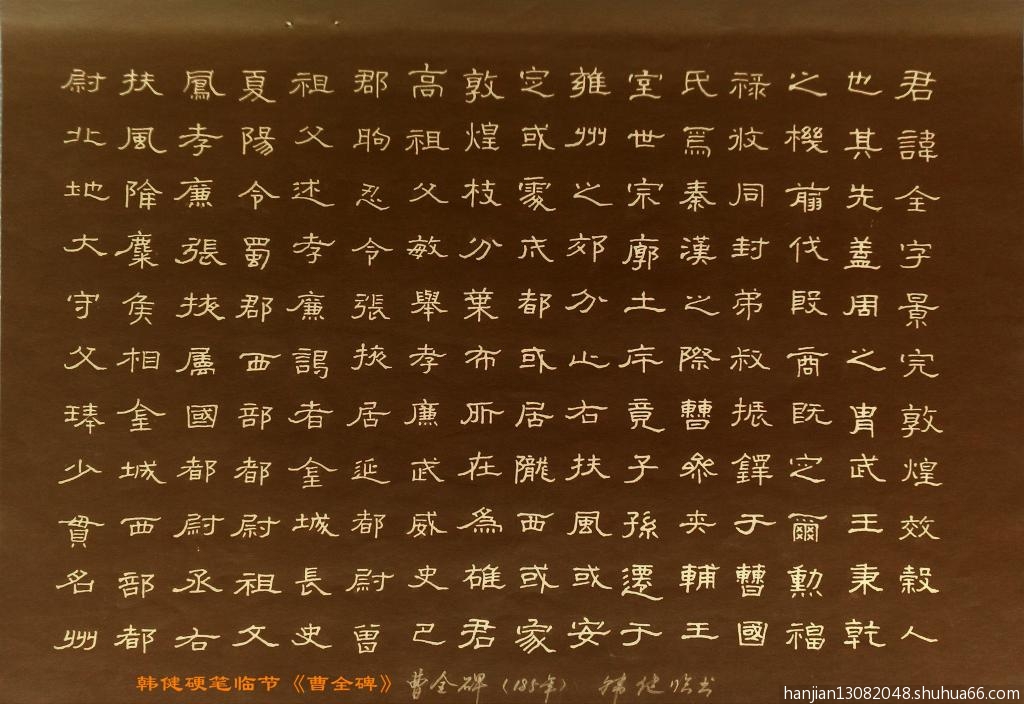 君諱全字景完敦煌效穀人
也其先蓋周之胄武王秉乾
之機翦伐殷商既定爾勳福
祿攸同封弟叔振鐸于曹國
氏焉秦漢之際曹參夾輔王
室世宗廓土斥竟子孫遷于
雍州之郊分止右扶風或安
定或處武都或居隴西或家
敦煌枝分葉布所在為雄君
高祖父敏舉孝廉武威史巴
郡朐忍令張掖居延都尉曾
祖父述孝廉謁者金城長史
夏陽令蜀郡西部都尉祖父
鳳孝廉張掖屬國都尉丞右
扶風隃麋侯相金城西部都
尉北地大守父琫少貫名州
曹全碑（185年） 韩健临书
韩健硬笔临节《曹全碑》
hanjian13082048.shuhua66.com